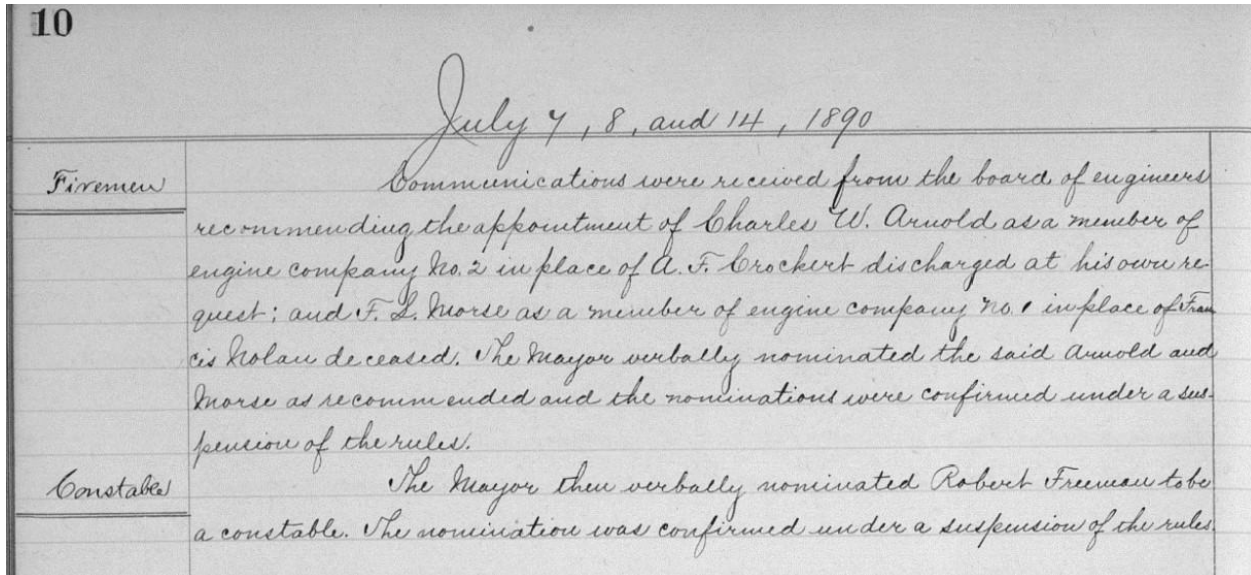 10
July 7, 8, and 14, 1890
Firemen
Communications were received from the board of engineers
recommending the appointment of Charles W. Arnold as a member of
engine company No. 2 in place of A. F. Crockert discharged at his own re-
quest; and F. L. Morse as a member of engine company No. 1 in place of Fran
cis Nolan deceased. The Mayor verbally nominated the said Arnold and
Morse as recommended and the nominations were confirmed under a sus-
pension of the rules.
Constable
The Mayor then verbally nominated Robert Freeman to be
a constable. The nomination was confirmed under a suspension of the rules.